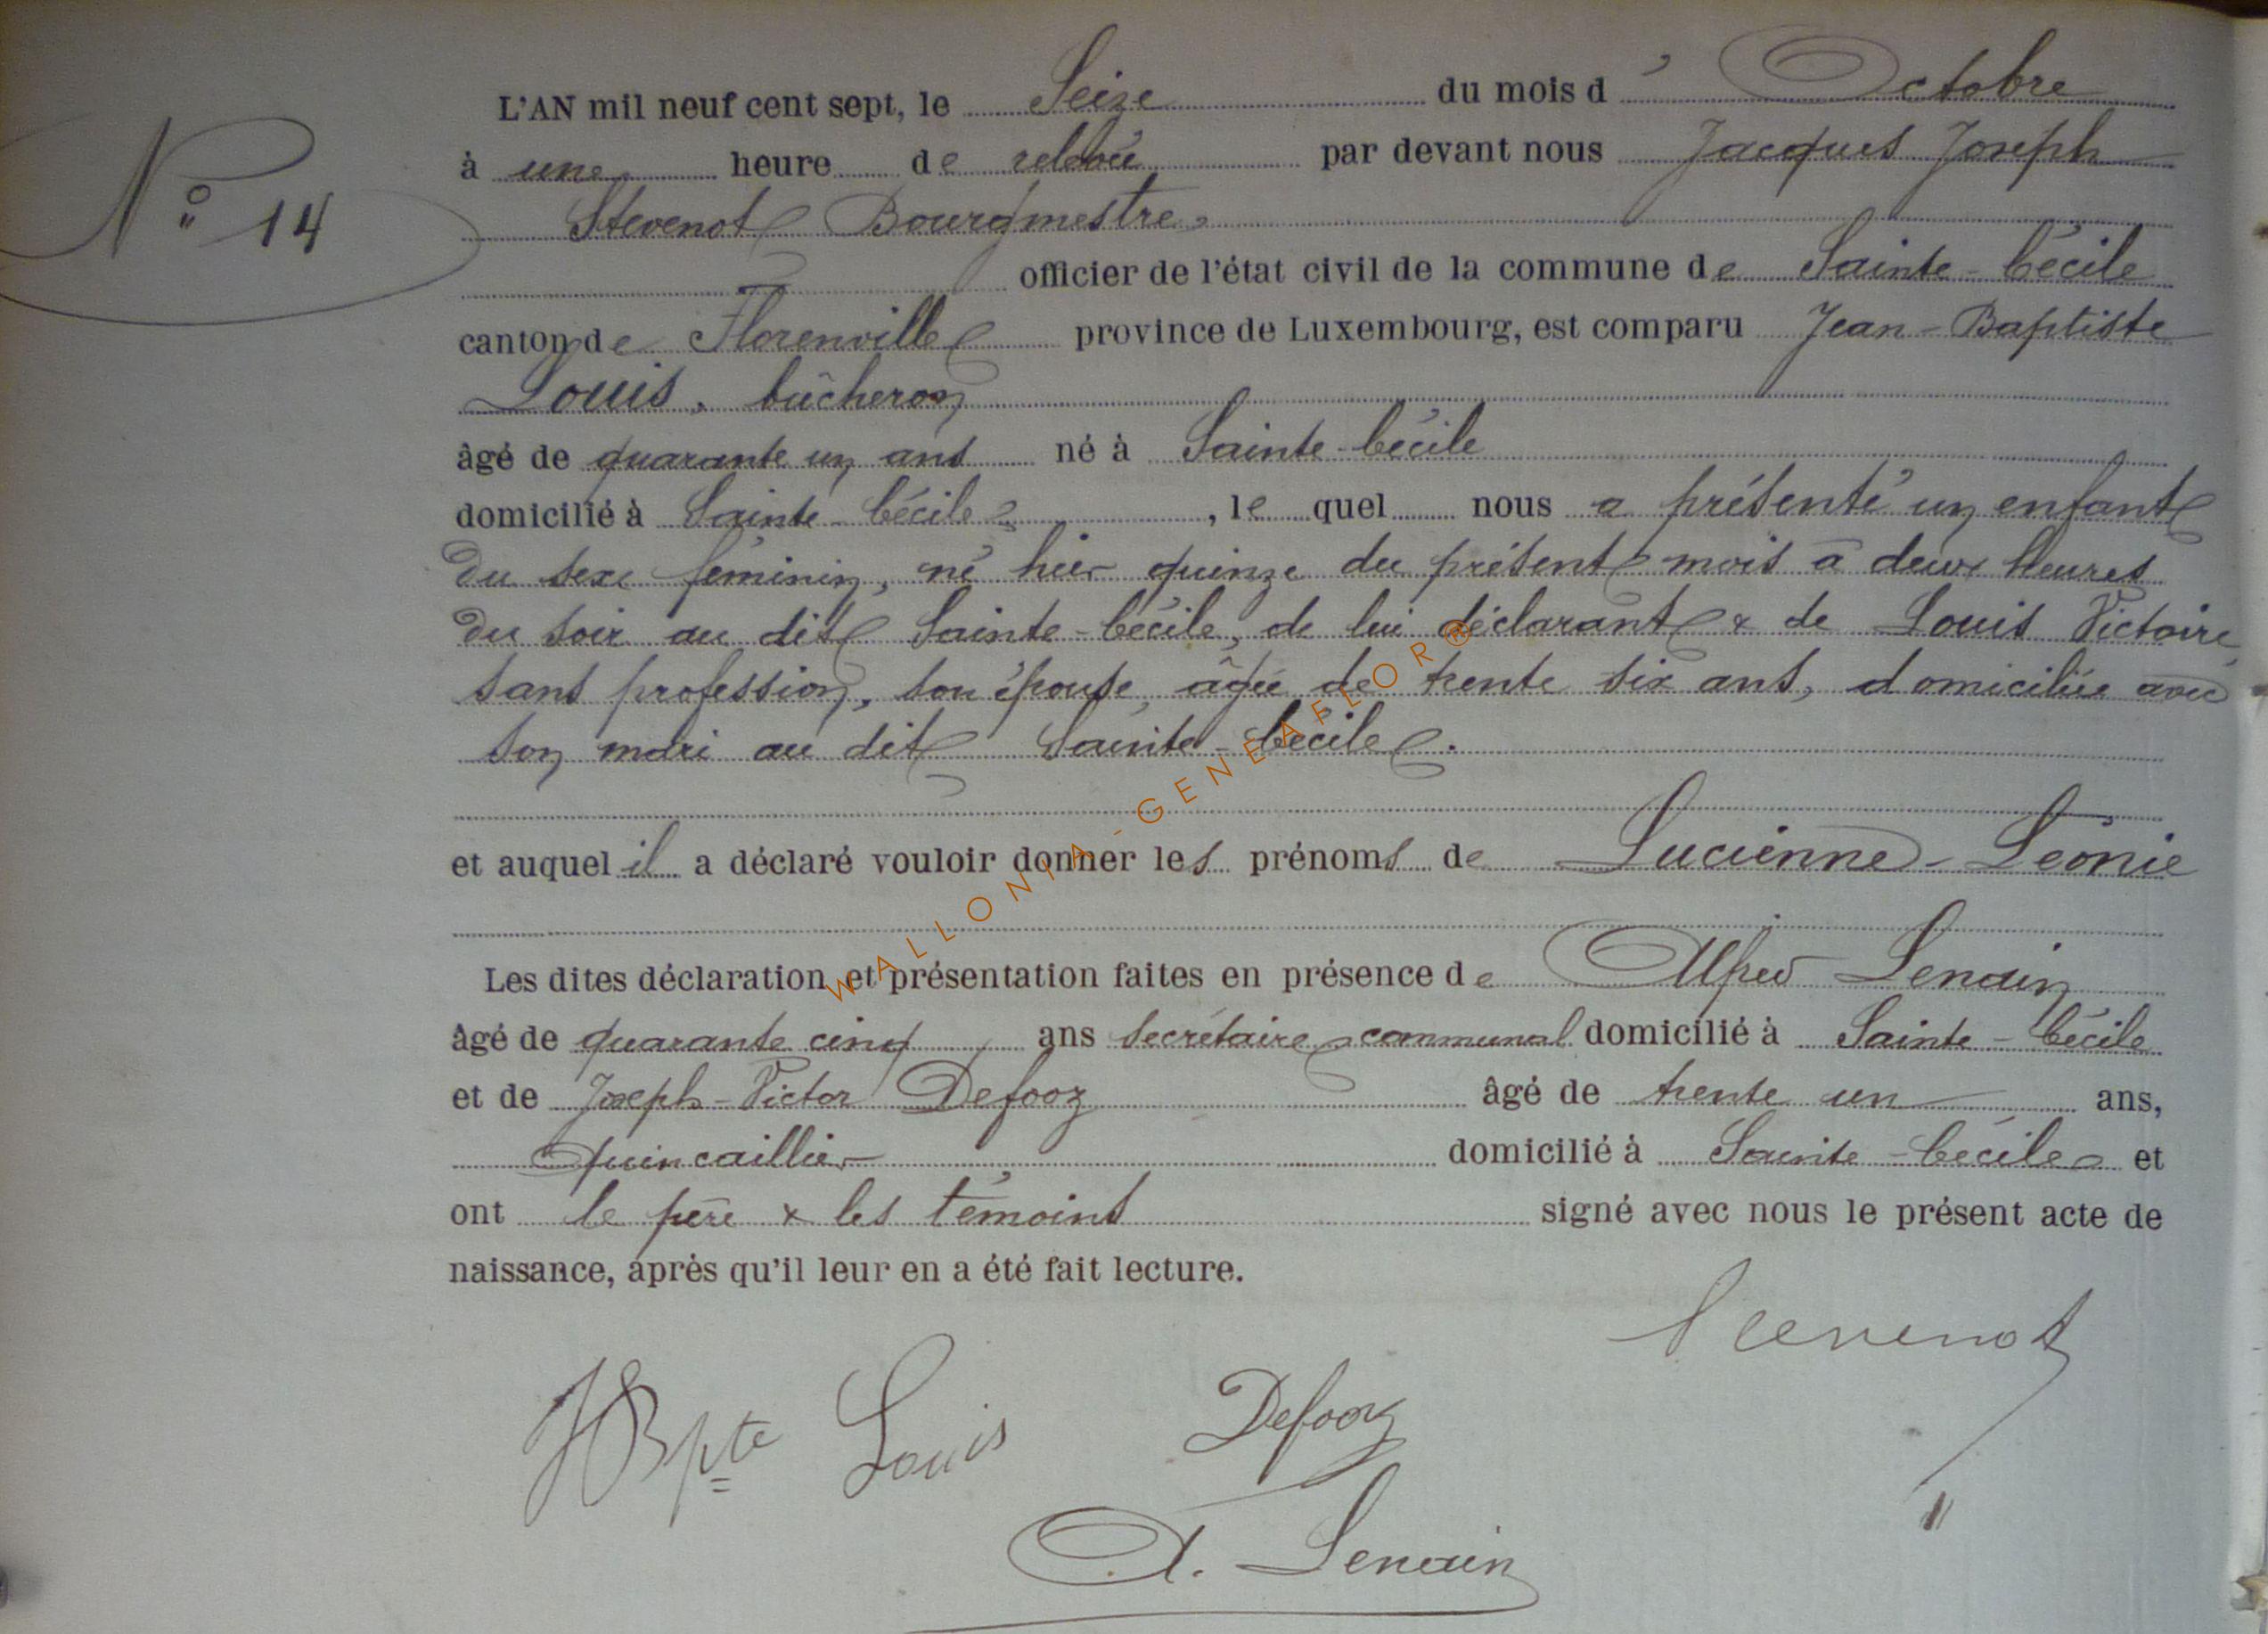 N° 14
L'AN mil neuf cent sept, le Seize du mois d' Octobre
à une heure de relevée par devant nous Jacques Joseph
Stevenot Bourgmestre
officier de l'état civil de la commune de Sainte-Cécile
canton de Florenville province de Luxembourg, est comparu Jean-Baptiste
Louis, bûcheron
âgé de quarante un ans né à Sainte-Cécile
domicilié à Sainte-Cécile, lequel nous a présenté un enfant
du sexe féminin, né hier quinze du présent mois à deux heures
du soir au dit Sainte-Cécile, de lui déclarant & de Louis Victoire,
sans profession, son épouse, âgée de trente six ans, domiciliée avec
son mari au dit Sainte-Cécile.
et auquel il a déclaré vouloir donner les prénoms de Lucienne-Léonie
Les dites déclaration et présentation faites en présence de Alfred Lenain
âgé de quarante cinq ans secrétaire communal domicilié à Sainte-Cécile
et de Joseph-Victor Defooz âgé de trente un ans,
quincaillier domicilié à Sainte-Cécile et
ont le père & les témoins signé avec nous le présent acte de
naissance, après qu'il leur en a été fait lecture.
Stevenot
JBpte Louis Defooz
A. Lenain
WALLONIA-GENEAFLOR®